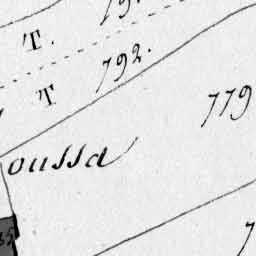 T.
T 792.
779
oussa